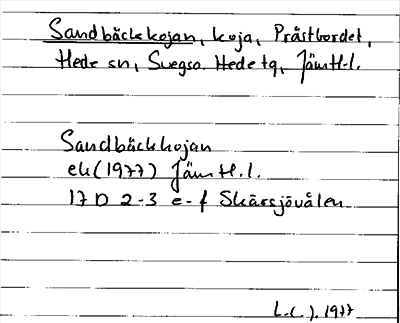 Sandbäckkojan, koja, Prästbordet,
Hede sn, Svegso. Hede tg, Jämtl.l.
Sandbäckkojan
ek (1977) Jämtl.l.
17 D 2-3 e-f Skärsjövålen
L.C.J. 1977